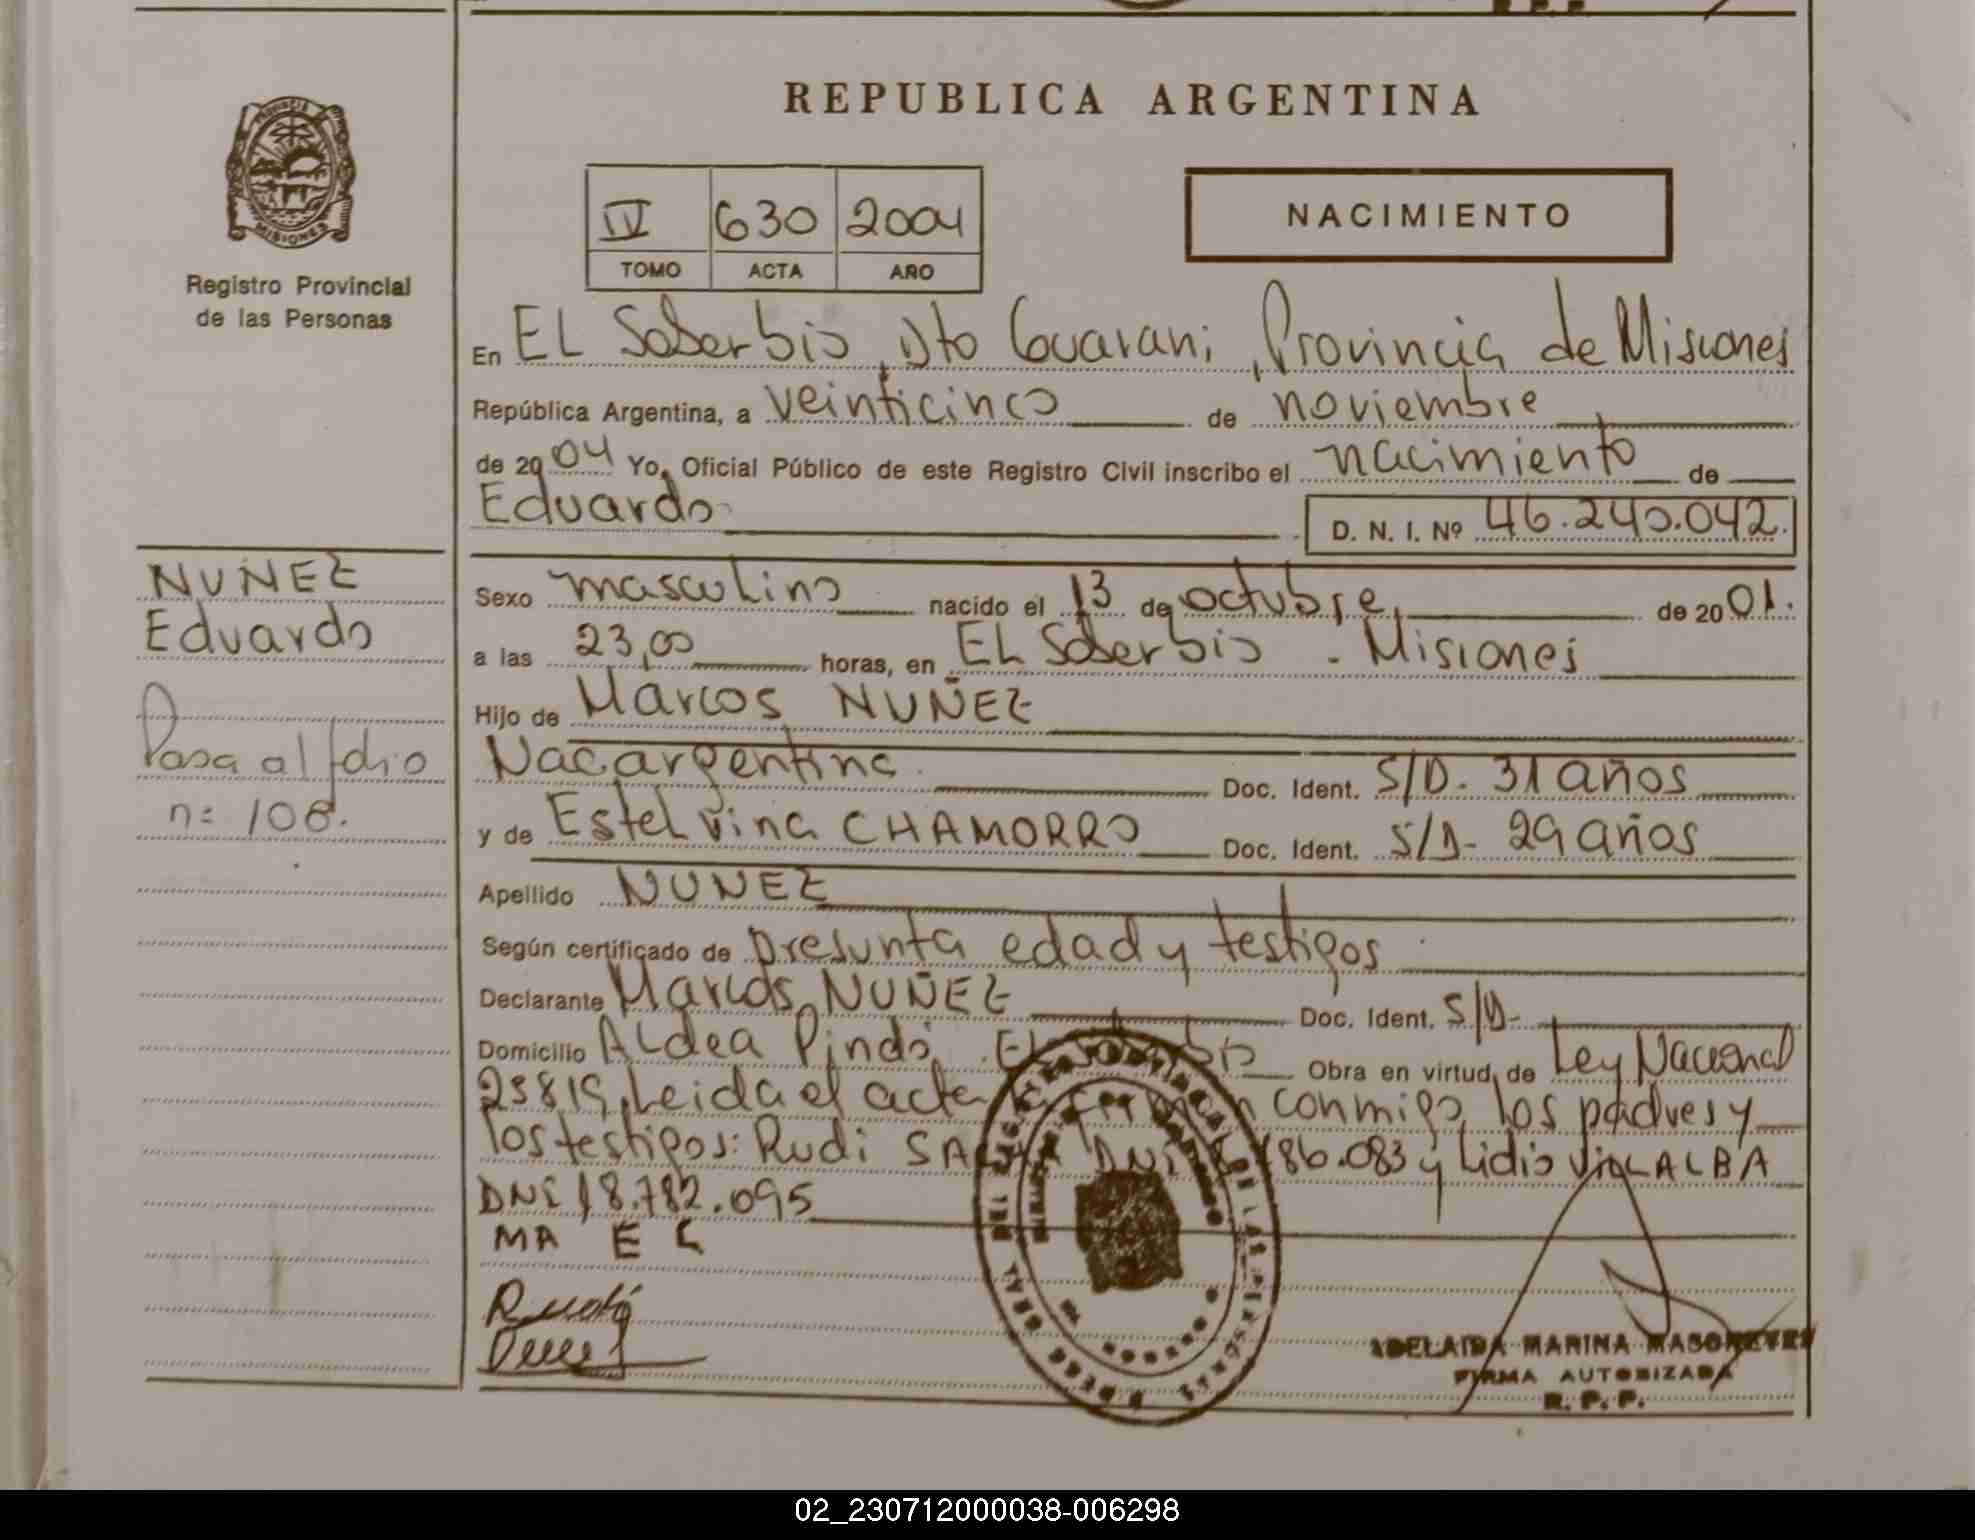 REPUBLICA ARGENTINA
PROVINCIA
MISIONES
Registro Provincial
de las Personas
IV 630 2004
TOMO ACTA AÑO
NACIMIENTO
En EL Soberbio, Dto Guarani, Provincia de Misiones
República Argentina, a veinticinco de noviembre
de 2004 Yo, Oficial Público de este Registro Civil inscribo el nacimiento de
Eduardo D. N. I. Nº 46.240.042.
NUÑEZ
Eduardo
Pasa al folio
n= 108.
Sexo masculino nacido el 13 de octubre de 2001.
a las 23,00 horas, en EL Soberbio - Misiones
Hijo de Marcos NUÑEZ
Nac. argentina Doc. Ident. S/D. 31 años
y de Estelvina CHAMORRO Doc. Ident. S/D- 29 años
Apellido NUÑEZ
Según certificado de presunta edad y testigos
Declarante Marcos NUÑEZ Doc. Ident. S/D-
Domicilio Aldea Pindó, El Soberbio Obra en virtud de Ley Nacional
25819, Leida el acta la firman conmigo, los padres y
los testigos: Rudi DNI 186.083 y Lidio VILLALBA
DNI 18.782.095
MA E L
ADELAIDA MARINA
FIRMA AUTORIZADA
R. P. P.
02_230712000038-006298